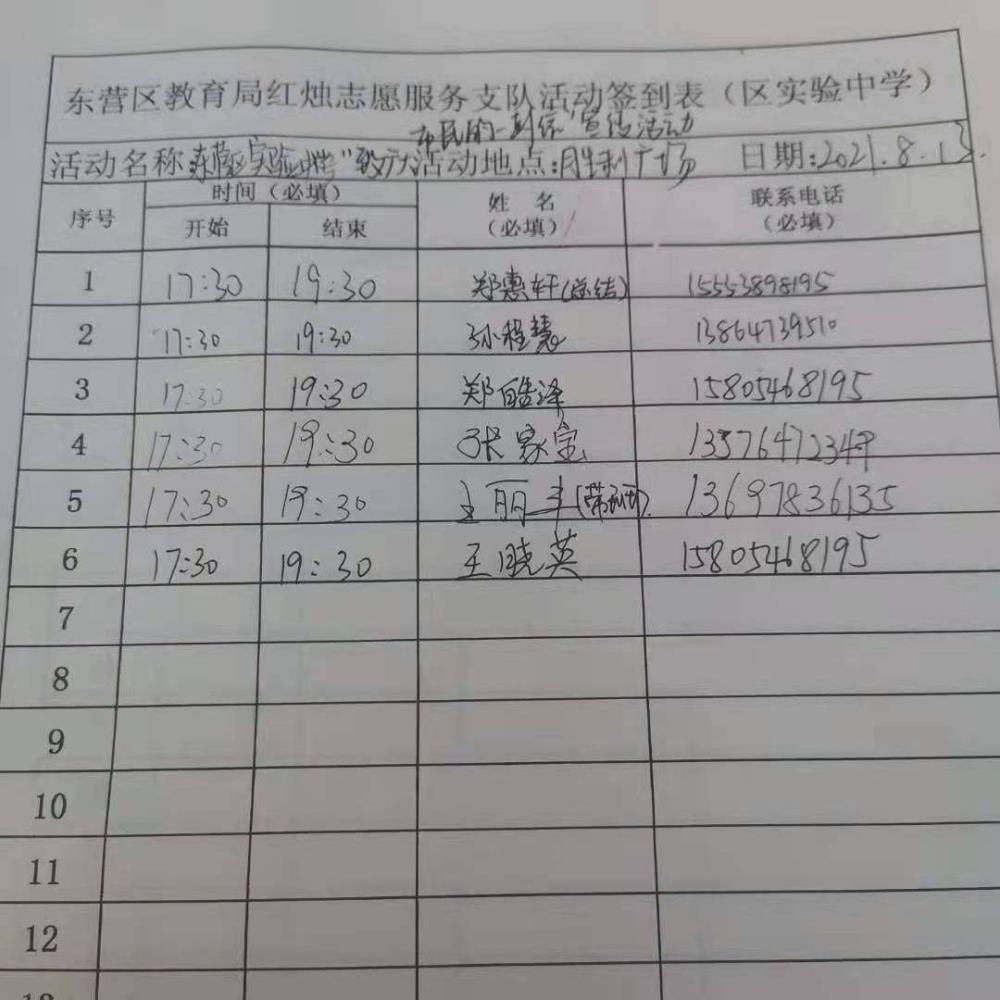 东营区教育局红烛志愿服务支队活动签到表（区实验中学）
市民的一封信"宣传活动
活动名称:东营区实验中学"致广大活动地点:胜利广场 日期:2021.8.13.
序号 时间（必填） 姓 名（必填） 联系电话（必填）
开始 结束
1 17:30 19:30 郑惠轩(总结) 15553898195
2 17:30 19:30 孙程慧 13864739510
3 17:30 19:30 郑皓泽 15805468195
4 17:30 19:30 张家宝
5 17:30 19:30 王丽丰 13697836135
6 17:30 19:30 王晓英 15805468195
7
8
9
10
11
12
13